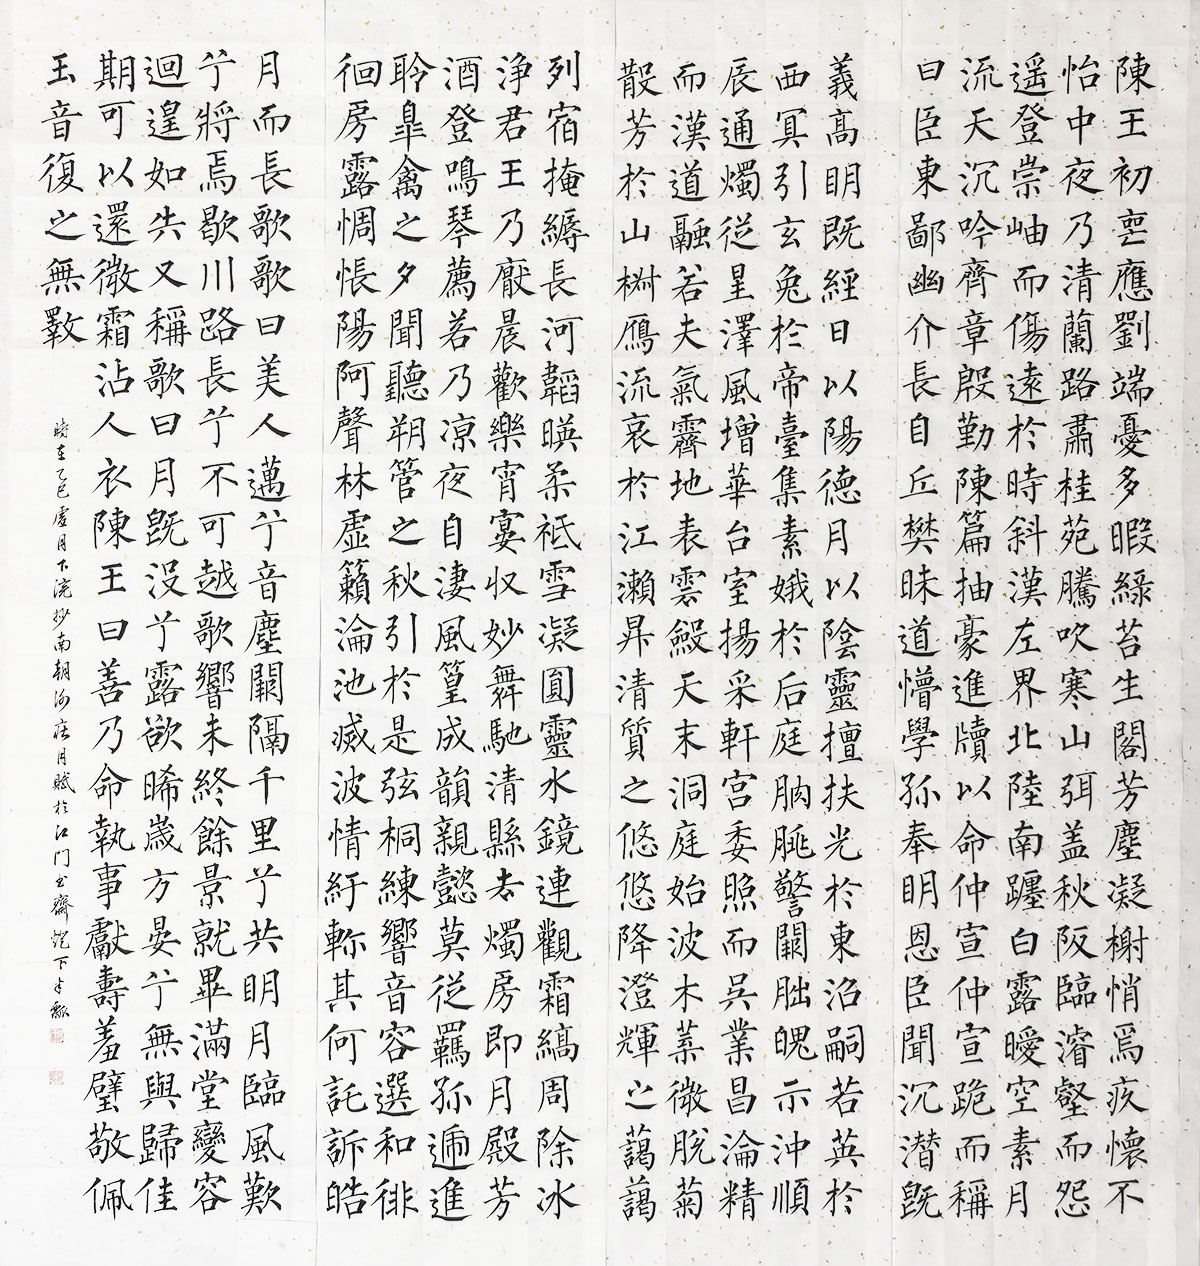 陳王初喪應劉端憂多暇綠苔生閣芳塵凝榭悄焉疚懷不
怡中夜乃清蘭路肅桂苑騰吹寒山弭盖秋阪臨濬壑而怨
遥登崇岫而傷遠於時斜漢左界北陸南躔白露曖空素月
流天沉吟齊章殷勤陳篇抽豪進牘以命仲宣仲宣跪而稱
曰臣東鄙幽介長自丘樊昧道懵學孤奉明恩臣聞沉潛既
義高明既經日以陽德月以陰靈擅扶光於東沼嗣若英於
西冥引玄兔於帝臺集素娥於后庭朒脁警闕朏魄示沖順
辰通燭從星澤風增華台室揚采軒宮委照而吳業昌淪精
而漢道融若夫氣霽地表雲斂天末洞庭始波木葉微脫菊
散芳於山椒鴈流哀於江瀨昇清質之悠悠降澄輝之藹藹
列宿掩縟長河韜暎柔祗雪凝圓靈水鏡連觀霜縞周除冰
淨君王乃厭晨歡樂宵宴収妙舞馳清縣去燭房即月殿芳
酒登鳴琴薦若乃凉夜自淒風篁成韻親懿莫從羈孤遞進
聆皋禽之夕聞聽朔管之秋引於是弦桐練響音容選和徘
徊房露惆悵陽阿聲林虛籟淪池滅波情紆軫其何託訴皓
月而長歌歌曰美人邁兮音塵闕隔千里兮共明月臨風歎
兮將焉歇川路長兮不可越歌響未終餘景就畢滿堂變容
迴遑如失又稱歌曰月既沒兮露欲晞歲方晏兮無與歸佳
期可以還微霜沾人衣陳王曰善乃命執事獻壽羞璧敬佩
玉音復之無斁
時在乙巳月下浣抄南朝謝莊月賦於江門書齋燈下半瓢